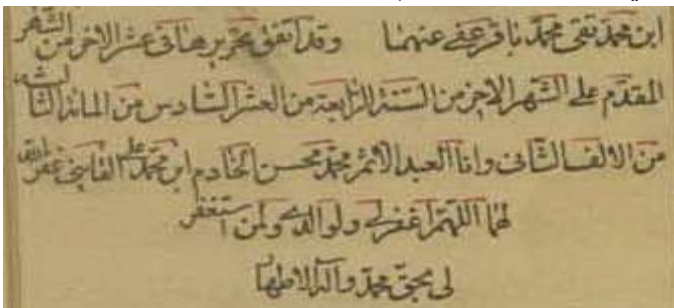 ابن محمد تقى محمد باقر عفى عنهما وقد اتفق تحريرها فى عشر الاخر من الشهر
المقدم على الشهر الاخر من السنة الرابعة من العشر السادس من المائة الثالثة
من الالف الثانى وانا العبد الاثم محمد محسن الخادم ابن محمد على القاينى غفر الله
لهما اللهم اغفر لى ولوالدى ولمن استغفر
لى بحق محمد وآله الاطهار